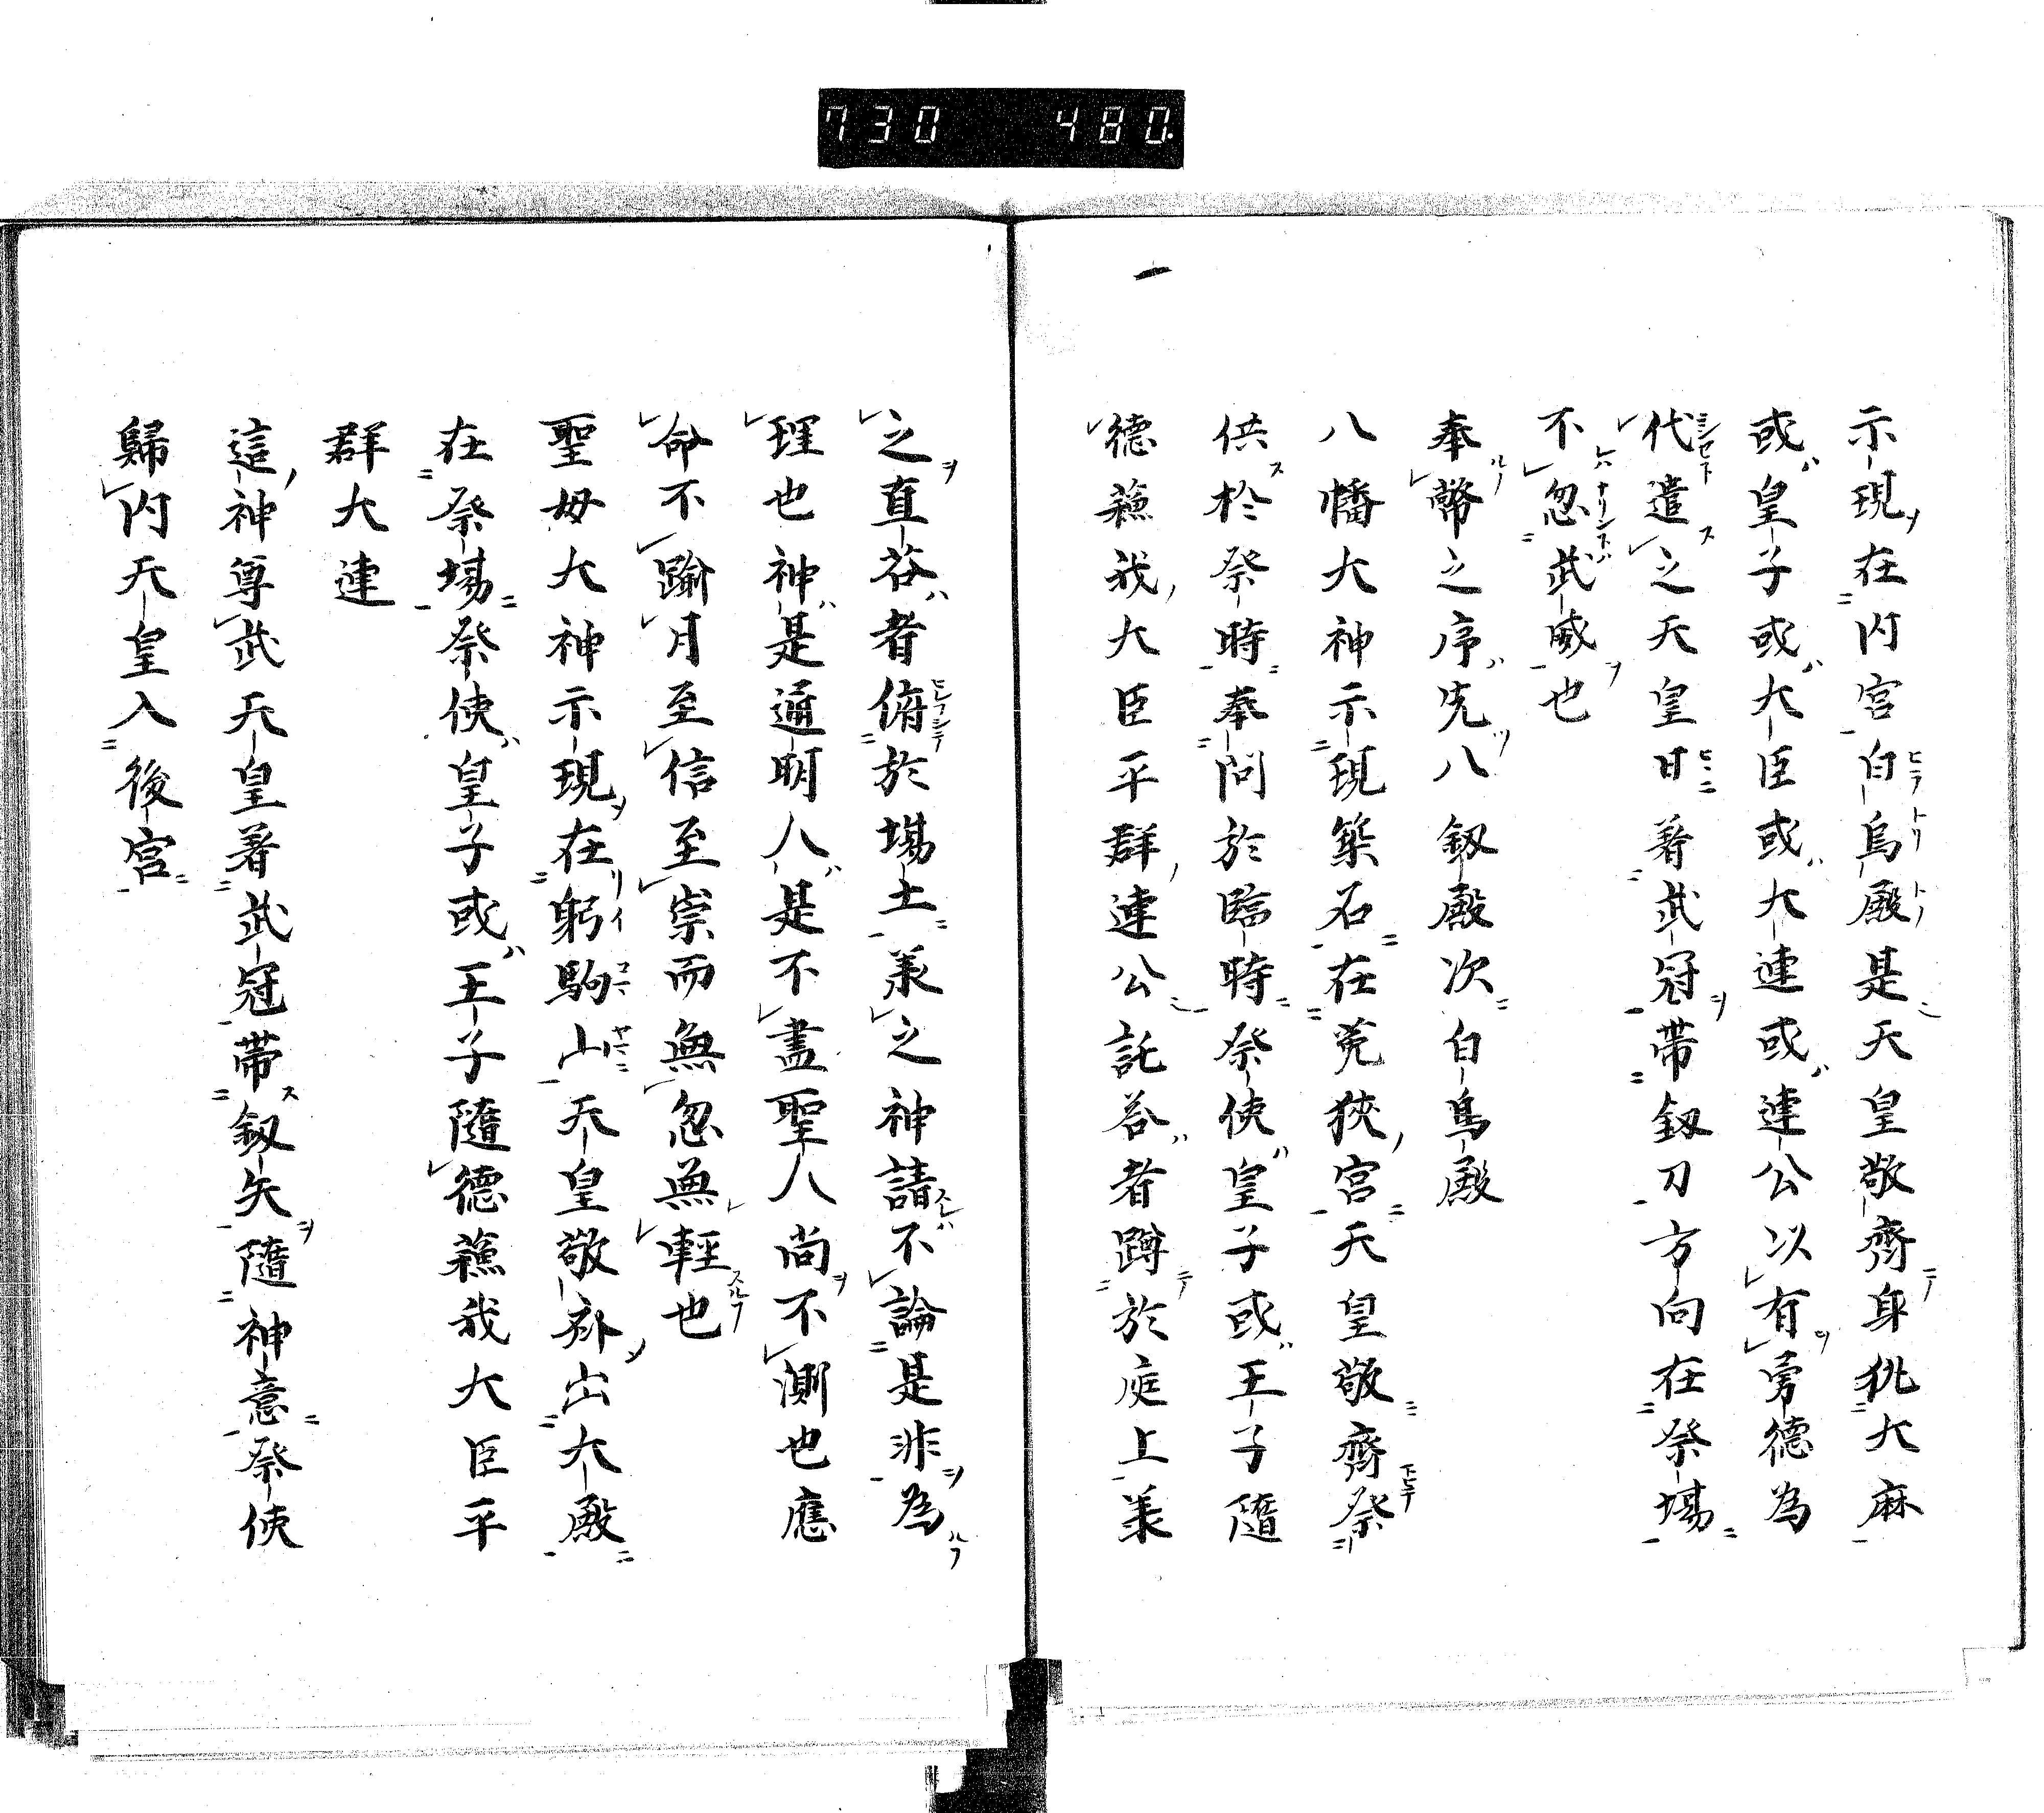 730 480.
一
示現在内宮白鳥殿是天皇敬齊身祧大麻
或皇子或大臣或大連或連公以有勇德為
代遣之天皇日著武冠帶釼刀方向在祭場
不忽武威也
奉幣之序先八釼殿次白鳥殿
八幡大神示現築石在菟狹宮天皇敬齊祭
供於祭時奉問於臨時祭使皇子或王子隨
德蘓我大臣平群連公託答者蹲於庭上兼
之直答者俯於場土兼之神請不論是非為
理也神是通明人是不盡聖人尚不測也應
命不踰月至信至崇而無忽無輕也
聖母大神示現在躬駒山天皇敬齊出大殿
在祭場祭使皇子或王子隨德蘓我大臣平
群大連
這神尊武天皇著武冠帶釼矢隨神意祭使
歸内天皇入後宮